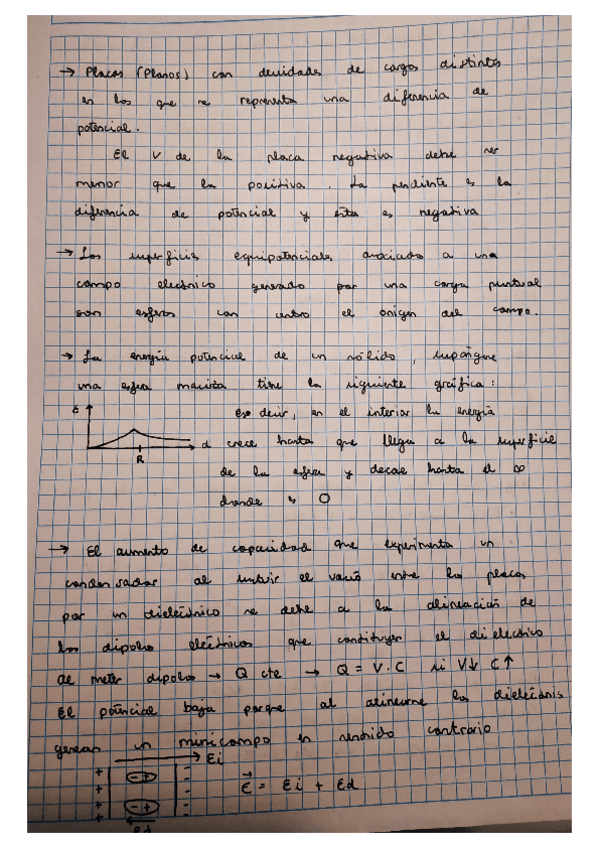 → Placas (Planos) con densidades de cargas distintas
en los que se representa una diferencia de
potencial.
El V de la placa negativa debe ser
menor que la positiva. La pendiente es la
diferencia de potencial y ésta es negativa
→ Las superficies equipotenciales asociado a una
campo electrico generado por una carga puntual
son esferas con centro el origen del campo.
→ La energía potencial de un sólido, supóngase
una esfera maciza tiene la siguiente gráfica:
E
es decir, en el interior la energía
d crece hasta que llega a la superficie
R
de la esfera y decae hasta el ∞
donde es 0
→ El aumento de capacidad que experimenta un
condensador al sustituir el vacío entre las placas
por un dieléctrico se debe a la alineación de
los dipolos eléctricos que constituyen el dielectrico
Al meter dipolos → Q cte → Q = V . C si V↓ C↑
El potencial baja porque al alinearse los
generan un minicampo en sentido contrario
Ei
+ - + -
+
+ - + -
+ -
E⃗ = Ei + Ed
Ed